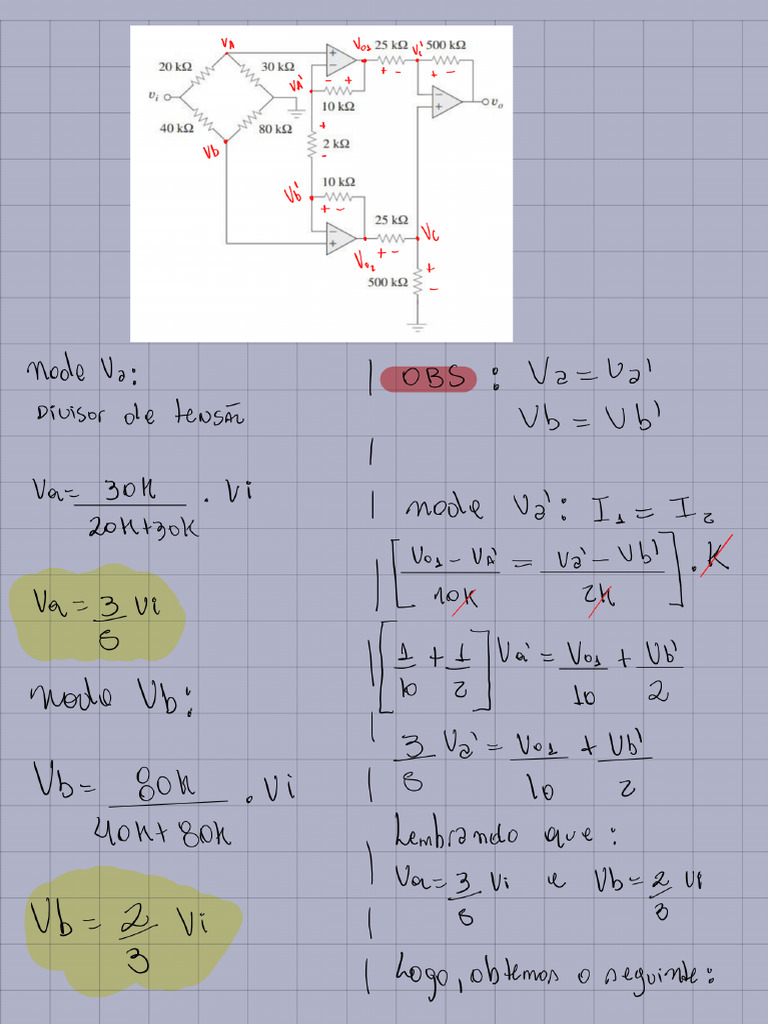 VA
20 kΩ
30 kΩ
vi
40 kΩ
80 kΩ
Vb
VA'
Vo1
25 kΩ
Vi'
500 kΩ
+
−
- +
+ -
+ -
10 kΩ
+
2 kΩ
-
−
+
vo
Vb'
10 kΩ
+ -
−
+
Vo2
25 kΩ
+ -
Vc
500 kΩ
+
-
node Va:
Divisor de tensão
Va= 30K / 20K+30K . Vi
Va = 3/5 Vi
node Vb:
Vb= 80K / 40K+80K . Vi
Vb = 2/3 Vi
OBS : Va = Va'
Vb = Vb'
node Va': I1 = I2
[ Vo1 - VA' / 10K = Va' - Vb' / 2K ] . K
[ 1/10 + 1/2 ] Va' = Vo1/10 + Vb'/2
3/5 Va' = Vo1/10 + Vb'/2
Lembrando que:
Va = 3/5 Vi e Vb = 2/3 Vi
Logo, obtemos o seguinte: